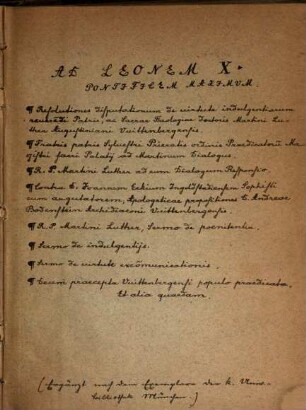 AD LEONEM X.
PONTIFICEM MAXIMUM.
¶ Resolutiones disputationum de virtute indulgentiarum
reverendi Patris, ac Sacrae Theologiae doctoris Martini Lu-
ther Augustiniani Vuittenbergensis.
¶ Fratris patris Sylvestri Prieratis ordinis Praedicatorū Ma-
gistri sacri Palatij ad Martinum Dialogus.
¶ R. P. Martini Luther ad eum Dialogum Responsio
¶ Contra D. Joannem Eckium Ingolstadiensem Sophist-
cum argutatorem, Apologeticae propositiones D. Andreae
Bodenstein Archidiaconi Vuittenbergensis.
¶ R. P. Martini Luther, Sermo de poenitentia.
¶ Sermo de indulgentijs.
¶ Sermo de virtute excōmunicationis.
¶ Decem praecepta Vuittenbergensi populo praedicata.
Et alia quaedam
(Ergänzt nach dem Exemplare der k. Univ.-
Bibliothek München.)